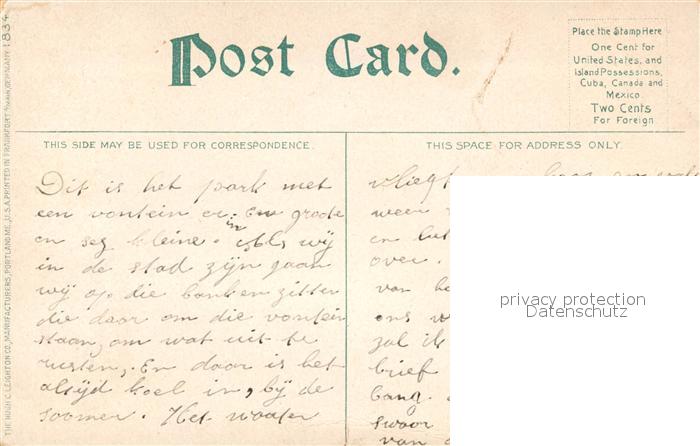 Post Card.
Place the Stamp Here
One Cent for
United States, and
Island Possessions,
Cuba, Canada and
Mexico.
Two Cents
For Foreign
THIS SIDE MAY BE USED FOR CORRESPONDENCE.
THIS SPACE FOR ADDRESS ONLY.
Dit is het park met
een vontein er in. Een grode
en seg kleine. Als wij
in de stad zijn gaan
wij op die banken zitten
die daar om die vontein
staan, om wat uit te
rusten. En daar is het
altijd koel in, bij de
soomer. Het waater
vliegt
weer
en
over.
van
ons
zal ik
brief
bang
swoor
van
privacy protection
Datenschutz
THE HUGH C. LEIGHTON CO., MANUFACTURERS, PORTLAND, ME., U.S.A. PRINTED IN FRANKFORT GERMANY 1834